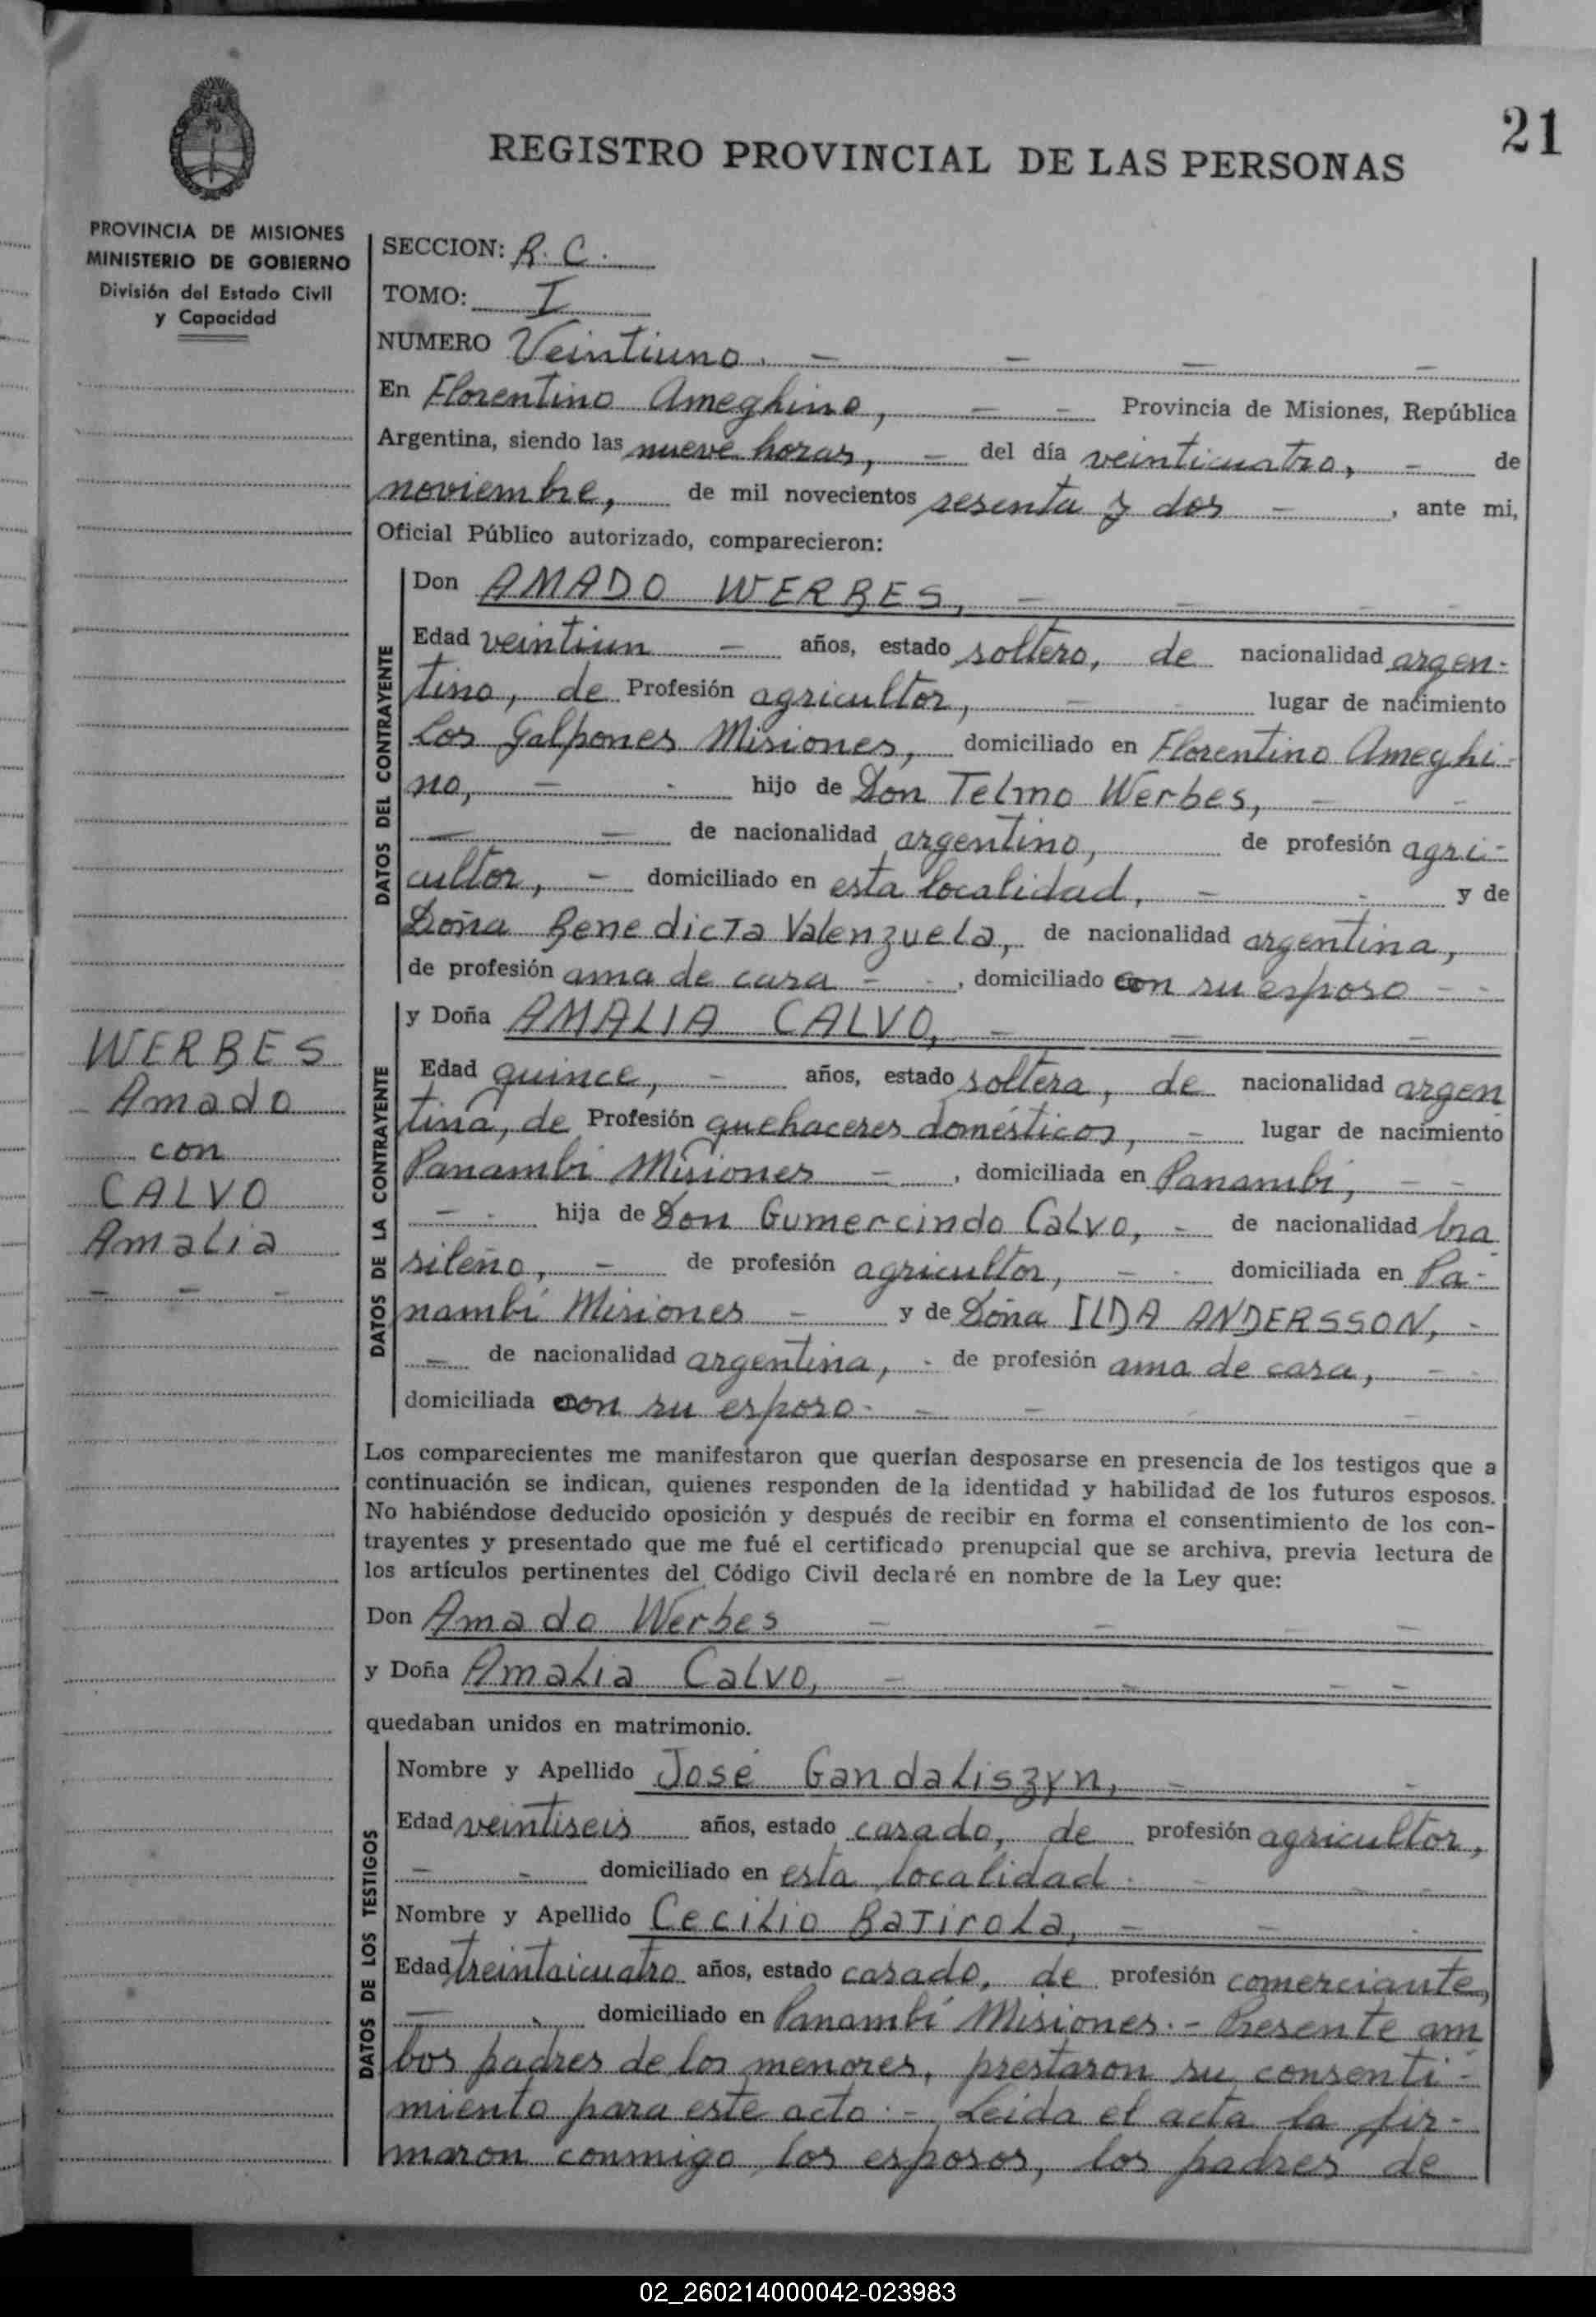 21
REGISTRO PROVINCIAL DE LAS PERSONAS
PROVINCIA DE MISIONES
MINISTERIO DE GOBIERNO
División del Estado Civil
y Capacidad
SECCION: R. C.
TOMO: I
NUMERO Veintiuno. - - - -
En Florentino Ameghino, - - Provincia de Misiones, República
Argentina, siendo las nueve horas, - del día veinticuatro, - de
noviembre, de mil novecientos sesenta y dos - , ante mi,
Oficial Público autorizado, comparecieron:
DATOS DEL CONTRAYENTE
Don AMADO WERBES, - - - -
Edad veintiun - años, estado soltero, de nacionalidad argen-
tino, de Profesión agricultor, - - lugar de nacimiento
Los Galpones Misiones, domiciliado en Florentino Ameghi-
no, - - hijo de Don Telmo Werbes, - -
- - de nacionalidad argentino, de profesión agri-
cultor, - domiciliado en esta localidad, - - y de
Doña Benedicta Valenzuela, de nacionalidad argentina,
de profesión ama de casa - - , domiciliado con su esposo - -
WERBES
Amado
con
CALVO
Amalia
- - -
DATOS DE LA CONTRAYENTE
y Doña AMALIA CALVO, - - -
Edad quince, - años, estado soltera, de nacionalidad argen
tina, de Profesión quehaceres domésticos, - lugar de nacimiento
Panambi Misiones - , domiciliada en Panambi, - -
- - hija de Don Gumercindo Calvo, - de nacionalidad bra
sileño, - de profesión agricultor, - - domiciliada en Pa-
nambí Misiones - y de Doña ILDA ANDERSSON, -
- de nacionalidad argentina, - de profesión ama de casa, - -
domiciliada con su esposo. - - - -
Los comparecientes me manifestaron que querían desposarse en presencia de los testigos que a
continuación se indican, quienes responden de la identidad y habilidad de los futuros esposos.
No habiéndose deducido oposición y después de recibir en forma el consentimiento de los con-
trayentes y presentado que me fué el certificado prenupcial que se archiva, previa lectura de
los artículos pertinentes del Código Civil declaré en nombre de la Ley que:
Don Amado Werbes - - - -
y Doña Amalia Calvo, - - - -
quedaban unidos en matrimonio.
DATOS DE LOS TESTIGOS
Nombre y Apellido José Gandaliszyn, - -
Edad veintiseis años, estado casado, de profesión agricultor,
- - domiciliado en esta localidad. - - -
Nombre y Apellido Cecilio Batirola, - - -
Edad treintaicuatro años, estado casado, de profesión comerciante,
- - domiciliado en Panambí Misiones. - Presente am
bos padres de los menores, prestaron su consenti-
miento para este acto. - Leida el acta la fir-
maron conmigo los esposos, los padres de
02_260214000042-023983